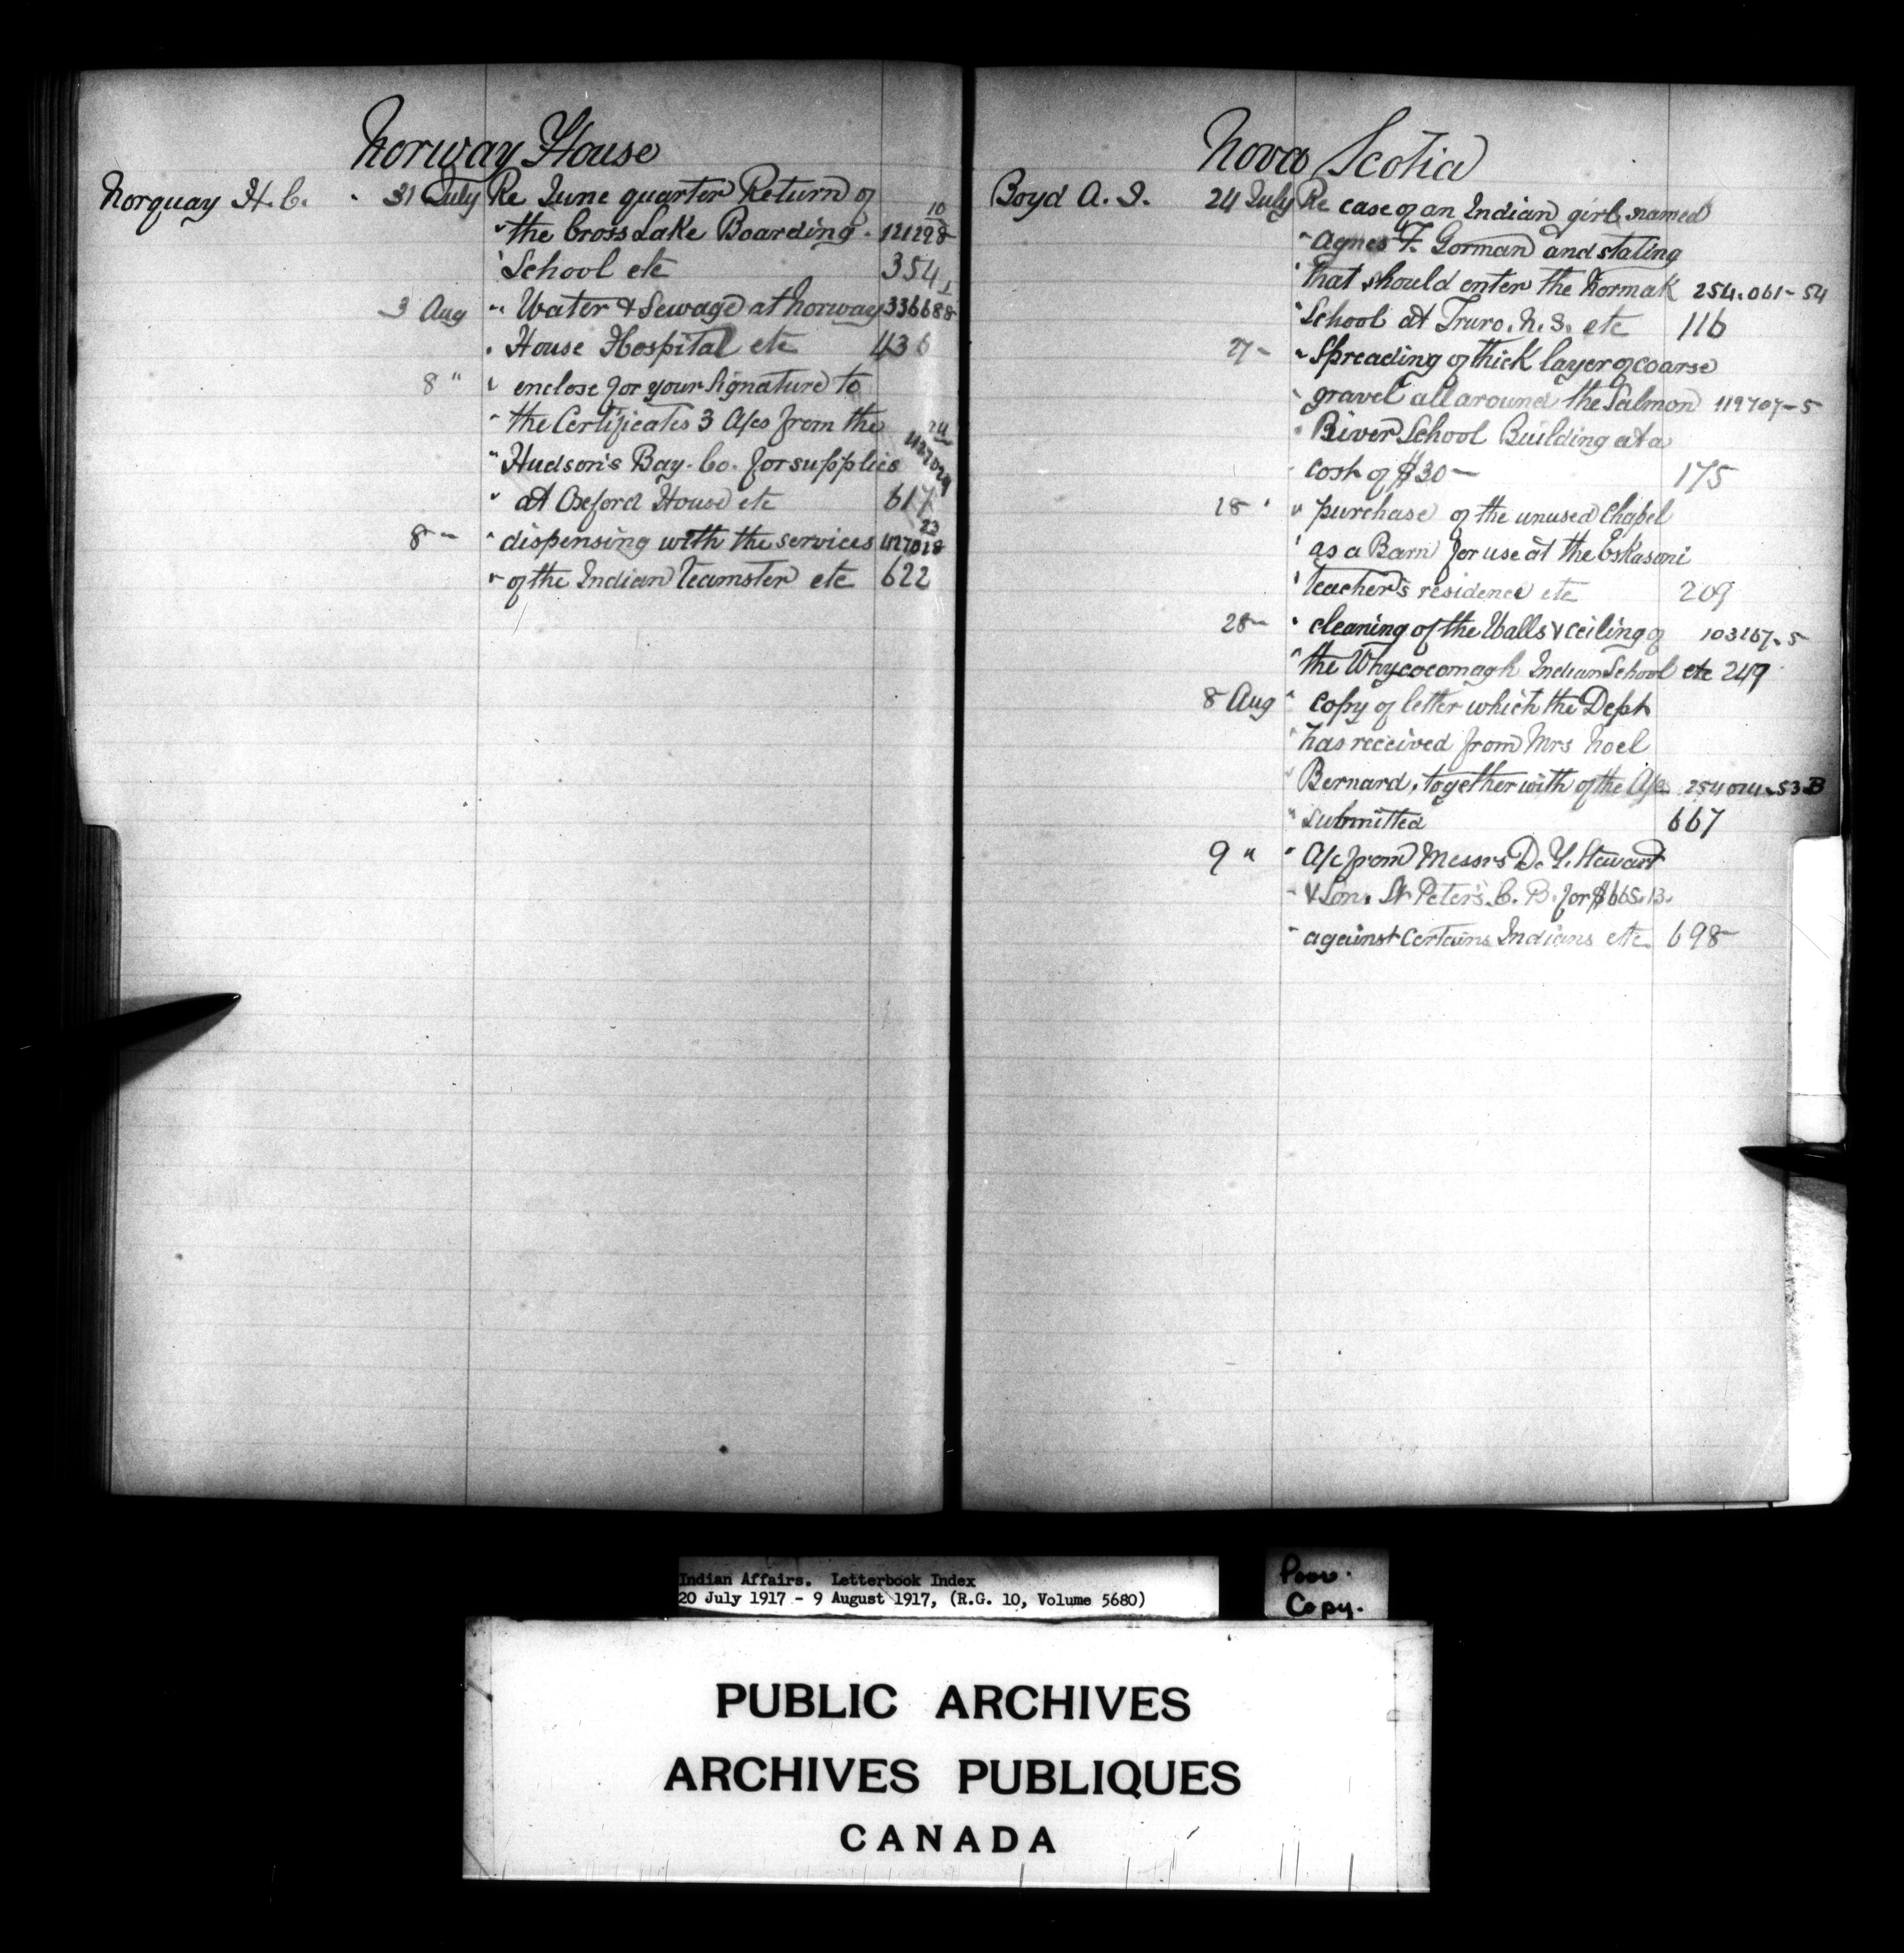 Norway House
Norquay H. C. 31 July Re June quarter Return of
" the Cross Lake Boarding 121298-10
" School etc 354
3 Aug " Water & Sewage at Norway 336688-1
" House Hospital etc 436
8 " " enclose for your Signature to
" the Certificates 3 A/cs from the
" Hudson's Bay. Co. for supplies
" at Oxford House etc 617
8 " " dispensing with the services 23
" of the Indian teamster etc 622
Nova Scotia
Boyd A. J. 24 July Re case of an Indian girl named
" Agnes F. Gorman and stating
" that should enter the Normak 254.061-54
" School at Truro, N. S. etc 116
" Spreading of thick layer of coarse
" gravel all around the Salmon 119707-5
" River School Building at a
" cost of $30- 175
28 " " purchase of the unused Chapel
" as a Barn for use at the Eskasoni
" teacher's residence etc 209
28 " " cleaning of the Walls & ceiling of 103267-5
" the Whycocomagh Indian School etc 249
8 Aug " copy of letter which the Dept
" has received from Mrs Noel
" Bernard, together with of the A/c 254014-53B
" submitted 667
9 " " A/c from Messrs D. Y. Stewart
" & Son, St Peter's. C. B. for $665.13.
" against certains Indians etc 698
Indian Affairs. Letterbook Index
20 July 1917 - 9 August 1917, (R.G. 10, Volume 5680)
Poor.
Copy.
PUBLIC ARCHIVES
ARCHIVES PUBLIQUES
CANADA